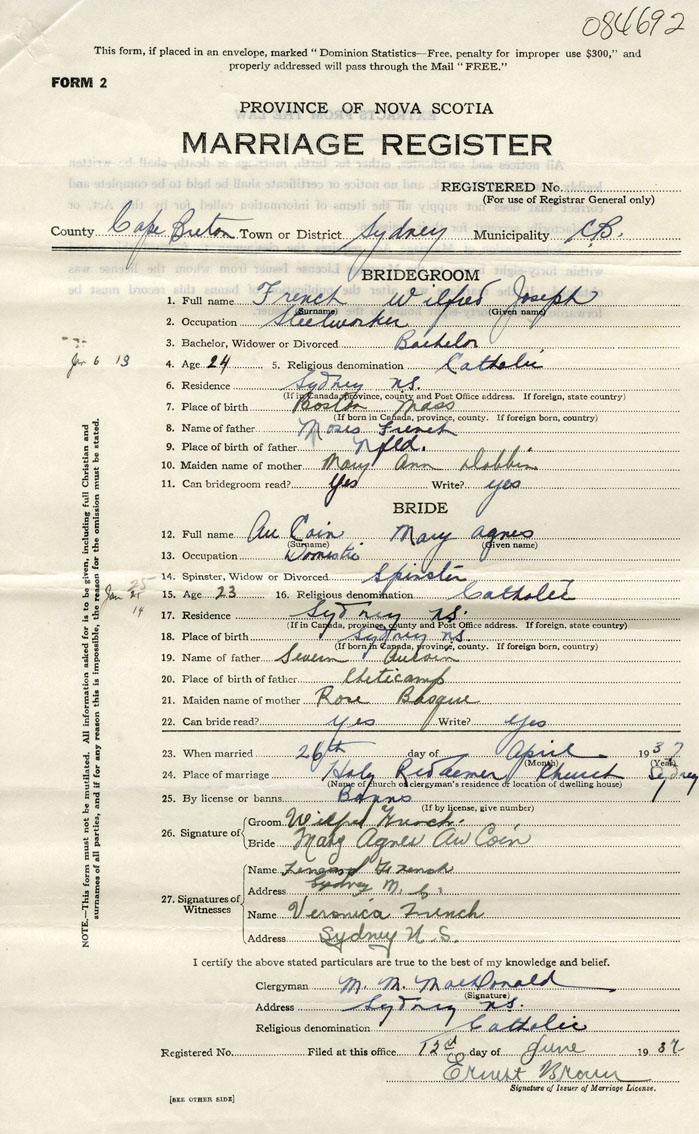 084692
This form, if placed in an envelope, marked "Dominion Statistics—Free, penalty for improper use $300," and
properly addressed will pass through the Mail "FREE."
FORM 2
PROVINCE OF NOVA SCOTIA
MARRIAGE REGISTER
REGISTERED No.
(For use of Registrar General only)
County Cape Breton Town or District Sydney Municipality C.B.
BRIDEGROOM
1. Full name French Wilfred Joseph
(Surname) (Given name)
2. Occupation Steelworker
3. Bachelor, Widower or Divorced Bachelor
Jan 6 13
4. Age 24 5. Religious denomination Catholic
6. Residence Sydney N.S.
(If in Canada, province, county and Post Office address. If foreign, state country)
7. Place of birth Boston Mass
(If born in Canada, province, county. If foreign born, country)
8. Name of father Moses French
9. Place of birth of father Nfld.
10. Maiden name of mother Mary Ann Dobbin
11. Can bridegroom read? Yes Write? yes
BRIDE
12. Full name Au Coin Mary Agnes
(Surname) (Given name)
13. Occupation Domestic
14. Spinster, Widow or Divorced Spinster
Jan 25
14
15. Age 23 16. Religious denomination Catholic
17. Residence Sydney N.S.
(If in Canada, province, county and Post Office address. If foreign, state country)
18. Place of birth Sydney N.S.
(If born in Canada, province, county. If foreign born, country)
19. Name of father Severin Aucoin
20. Place of birth of father Cheticamp
21. Maiden name of mother Rose Basque
22. Can bride read? yes Write? yes
23. When married 26th day of April 1937
(Month) (Year)
24. Place of marriage Holy Redeemer Church Sydney
(Name of church or clergyman's residence or location of dwelling house)
25. By license or banns Banns
(If by license, give number)
26. Signature of
Groom Wilfred French
Bride Mary Agnes Au Coin
27. Signatures of Witnesses
Name French
Address Sydney
Name Veronica French
Address Sydney N.S.
I certify the above stated particulars are true to the best of my knowledge and belief.
Clergyman M. M. MacDonald
(Signature)
Address Sydney N.S.
Religious denomination Catholic
Registered No. Filed at this office day of June 1937
Ernest Brown
Signature of Issuer of Marriage License.
[SEE OTHER SIDE]
NOTE.—This form must not be mutilated. All information asked for is to be given, including full Christian and
surnames of all parties, and if for any reason this is impossible, the reason for the omission must be stated.